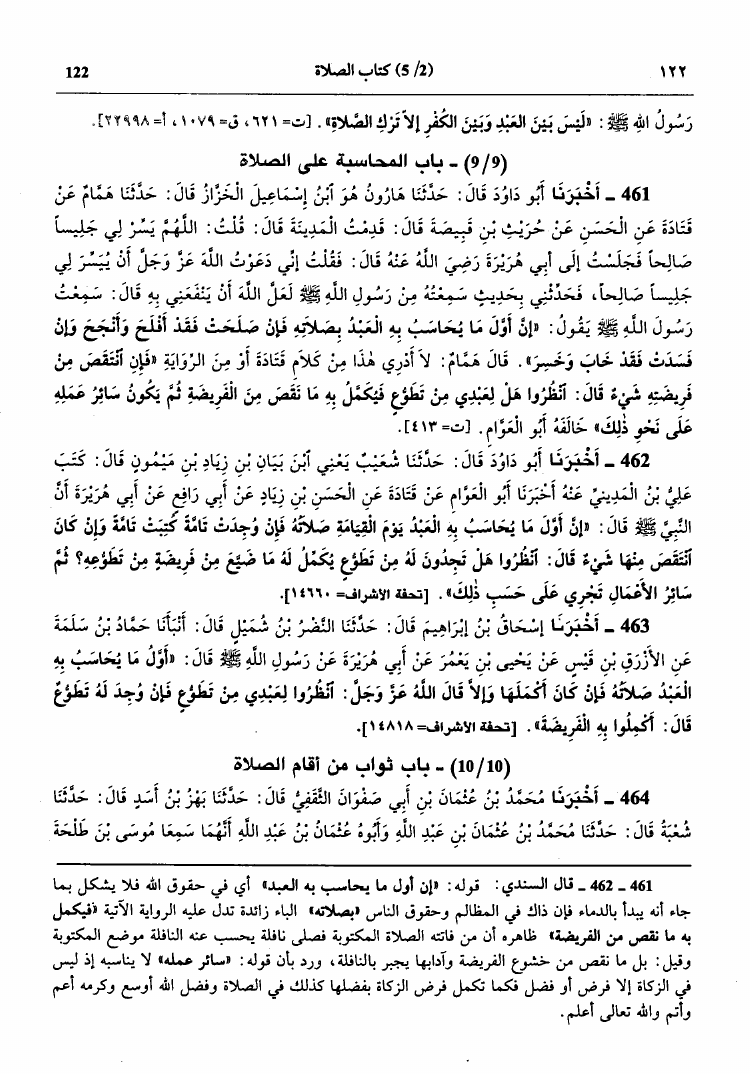 ١٢٢ (5/2) كتاب الصلاة 122
رَسُولُ اللهِ ﷺ: «لَيْسَ بَيْنَ العَبْدِ وَبَيْنَ الكُفْرِ إلاَّ تَرْكُ الصَّلاَةِ». [ت= ٦٢١، ق= ١٠٧٩، أ= ٢٢٩٩٨].
(9/9) - باب المحاسبة على الصلاة
461 - أَخْبَرَنَا أَبُو دَاوُدَ قَالَ: حَدَّثَنَا هَارُونُ هُوَ ٱبْنُ إِسْمَاعِيلَ الْخَزَّازُ قَالَ: حَدَّثَنَا هَمَّامٌ عَنْ
قَتَادَةَ عَنِ الْحَسَنِ عَنْ حُرَيْثِ بْنِ قَبِيصَةَ قَالَ: قَدِمْتُ الْمَدِينَةَ قَالَ: قُلْتُ: اللَّهُمَّ يَسِّرْ لِي جَلِيساً
صَالِحاً فَجَلَسْتُ إِلَى أَبِي هُرَيْرَةَ رَضِيَ اللَّهُ عَنْهُ قَالَ: فَقُلْتُ إِنِّي دَعَوْتُ اللَّهَ عَزَّ وَجَلَّ أَنْ يُيَسِّرَ لِي
جَلِيساً صَالِحاً، فَحَدِّثْنِي بِحَدِيثٍ سَمِعْتَهُ مِنْ رَسُولِ اللَّهِ ﷺ لَعَلَّ اللَّهَ أَنْ يَنْفَعَنِي بِهِ قَالَ: سَمِعْتُ
رَسُولَ اللَّهِ ﷺ يَقُولُ: «إِنَّ أَوَّلَ مَا يُحَاسَبُ بِهِ الْعَبْدُ بِصَلاَتِهِ فَإِنْ صَلَحَتْ فَقَدْ أَفْلَحَ وَأَنْجَحَ وَإِنْ
فَسَدَتْ فَقَدْ خَابَ وَخَسِرَ». قَالَ هَمَّامٌ: لاَ أَدْرِي هٰذَا مِنْ كَلاَمِ قَتَادَةَ أَوْ مِنَ الرِّوَايَةِ «فَإِنِ ٱنْتَقَصَ مِنْ
فَرِيضَتِهِ شَيْءٌ قَالَ: ٱنْظُرُوا هَلْ لِعَبْدِي مِنْ تَطَوُّعٍ فَيُكَمَّلُ بِهِ مَا نَقَصَ مِنَ الْفَرِيضَةِ ثُمَّ يَكُونُ سَائِرُ عَمَلِهِ
عَلَى نَحْوِ ذٰلِكَ» خَالَفَهُ أَبُو الْعَوَّامِ. [ت= ٤١٣].
462 - أَخْبَرَنَا أَبُو دَاوُدَ قَالَ: حَدَّثَنَا شُعَيْبٌ يَعْنِي ٱبْنَ بَيَانِ بْنِ زِيَادِ بْنِ مَيْمُونٍ قَالَ: كَتَبَ
عَلِيُّ بْنُ الْمَدِينِيِّ عَنْهُ أَخْبَرَنَا أَبُو الْعَوَّامِ عَنْ قَتَادَةَ عَنِ الْحَسَنِ بْنِ زِيَادٍ عَنْ أَبِي رَافِعٍ عَنْ أَبِي هُرَيْرَةَ أَنَّ
النَّبِيَّ ﷺ قَالَ: «إِنَّ أَوَّلَ مَا يُحَاسَبُ بِهِ الْعَبْدُ يَوْمَ الْقِيَامَةِ صَلاَتُهُ فَإِنْ وُجِدَتْ تَامَّةً كُتِبَتْ تَامَّةً وَإِنْ كَانَ
ٱنْتَقَصَ مِنْهَا شَيْءٌ قَالَ: ٱنْظُرُوا هَلْ تَجِدُونَ لَهُ مِنْ تَطَوُّعٍ يُكَمِّلُ لَهُ مَا ضَيَّعَ مِنْ فَرِيضَةٍ مِنْ تَطَوُّعِهِ؟ ثُمَّ
سَائِرُ الأَعْمَالِ تَجْرِي عَلَى حَسَبِ ذٰلِكَ». [تحفة الأشراف= ١٤٦٦٠].
463 - أَخْبَرَنَا إِسْحَاقُ بْنُ إِبْرَاهِيمَ قَالَ: حَدَّثَنَا النَّضْرُ بْنُ شُمَيْلٍ قَالَ: أَنْبَأَنَا حَمَّادُ بْنُ سَلَمَةَ
عَنِ الأَزْرَقِ بْنِ قَيْسٍ عَنْ يَحْيَى بْنِ يَعْمُرَ عَنْ أَبِي هُرَيْرَةَ عَنْ رَسُولِ اللَّهِ ﷺ قَالَ: «أَوَّلُ مَا يُحَاسَبُ بِهِ
الْعَبْدُ صَلاَتُهُ فَإِنْ كَانَ أَكْمَلَهَا وَإِلاَّ قَالَ اللَّهُ عَزَّ وَجَلَّ: ٱنْظُرُوا لِعَبْدِي مِنْ تَطَوُّعٍ فَإِنْ وُجِدَ لَهُ تَطَوُّعٌ
قَالَ: أَكْمِلُوا بِهِ الْفَرِيضَةَ». [تحفة الأشراف= ١٤٨١٨].
(10/10) - باب ثواب من أقام الصلاة
464 - أَخْبَرَنَا مُحَمَّدُ بْنُ عُثْمَانَ بْنِ أَبِي صَفْوَانَ الثَّقَفِيُّ قَالَ: حَدَّثَنَا بَهْزُ بْنُ أَسَدٍ قَالَ: حَدَّثَنَا
شُعْبَةُ قَالَ: حَدَّثَنَا مُحَمَّدُ بْنُ عُثْمَانَ بْنِ عَبْدِ اللَّهِ وَأَبُوهُ عُثْمَانُ بْنُ عَبْدِ اللَّهِ أَنَّهُمَا سَمِعَا مُوسَى بْنَ طَلْحَةَ
461 - 462 - قال السندي: قوله: «إن أول ما يحاسب به العبد» أي في حقوق الله فلا يشكل بما
جاء أنه يبدأ بالدماء فإن ذاك في المظالم وحقوق الناس «بصلاته» الباء زائدة تدل عليه الرواية الآتية «فيكمل
به ما نقص من الفريضة» ظاهره أن من فاتته الصلاة المكتوبة فصلى نافلة يحسب عنه النافلة موضع المكتوبة
وقيل: بل ما نقص من خشوع الفريضة وآدابها يجبر بالنافلة، ورد بأن قوله: «سائر عمله» لا يناسبه إذ ليس
في الزكاة إلا فرض أو فضل فكما تكمل فرض الزكاة بفضلها كذلك في الصلاة وفضل الله أوسع وكرمه أعم
وأتم والله تعالى أعلم.